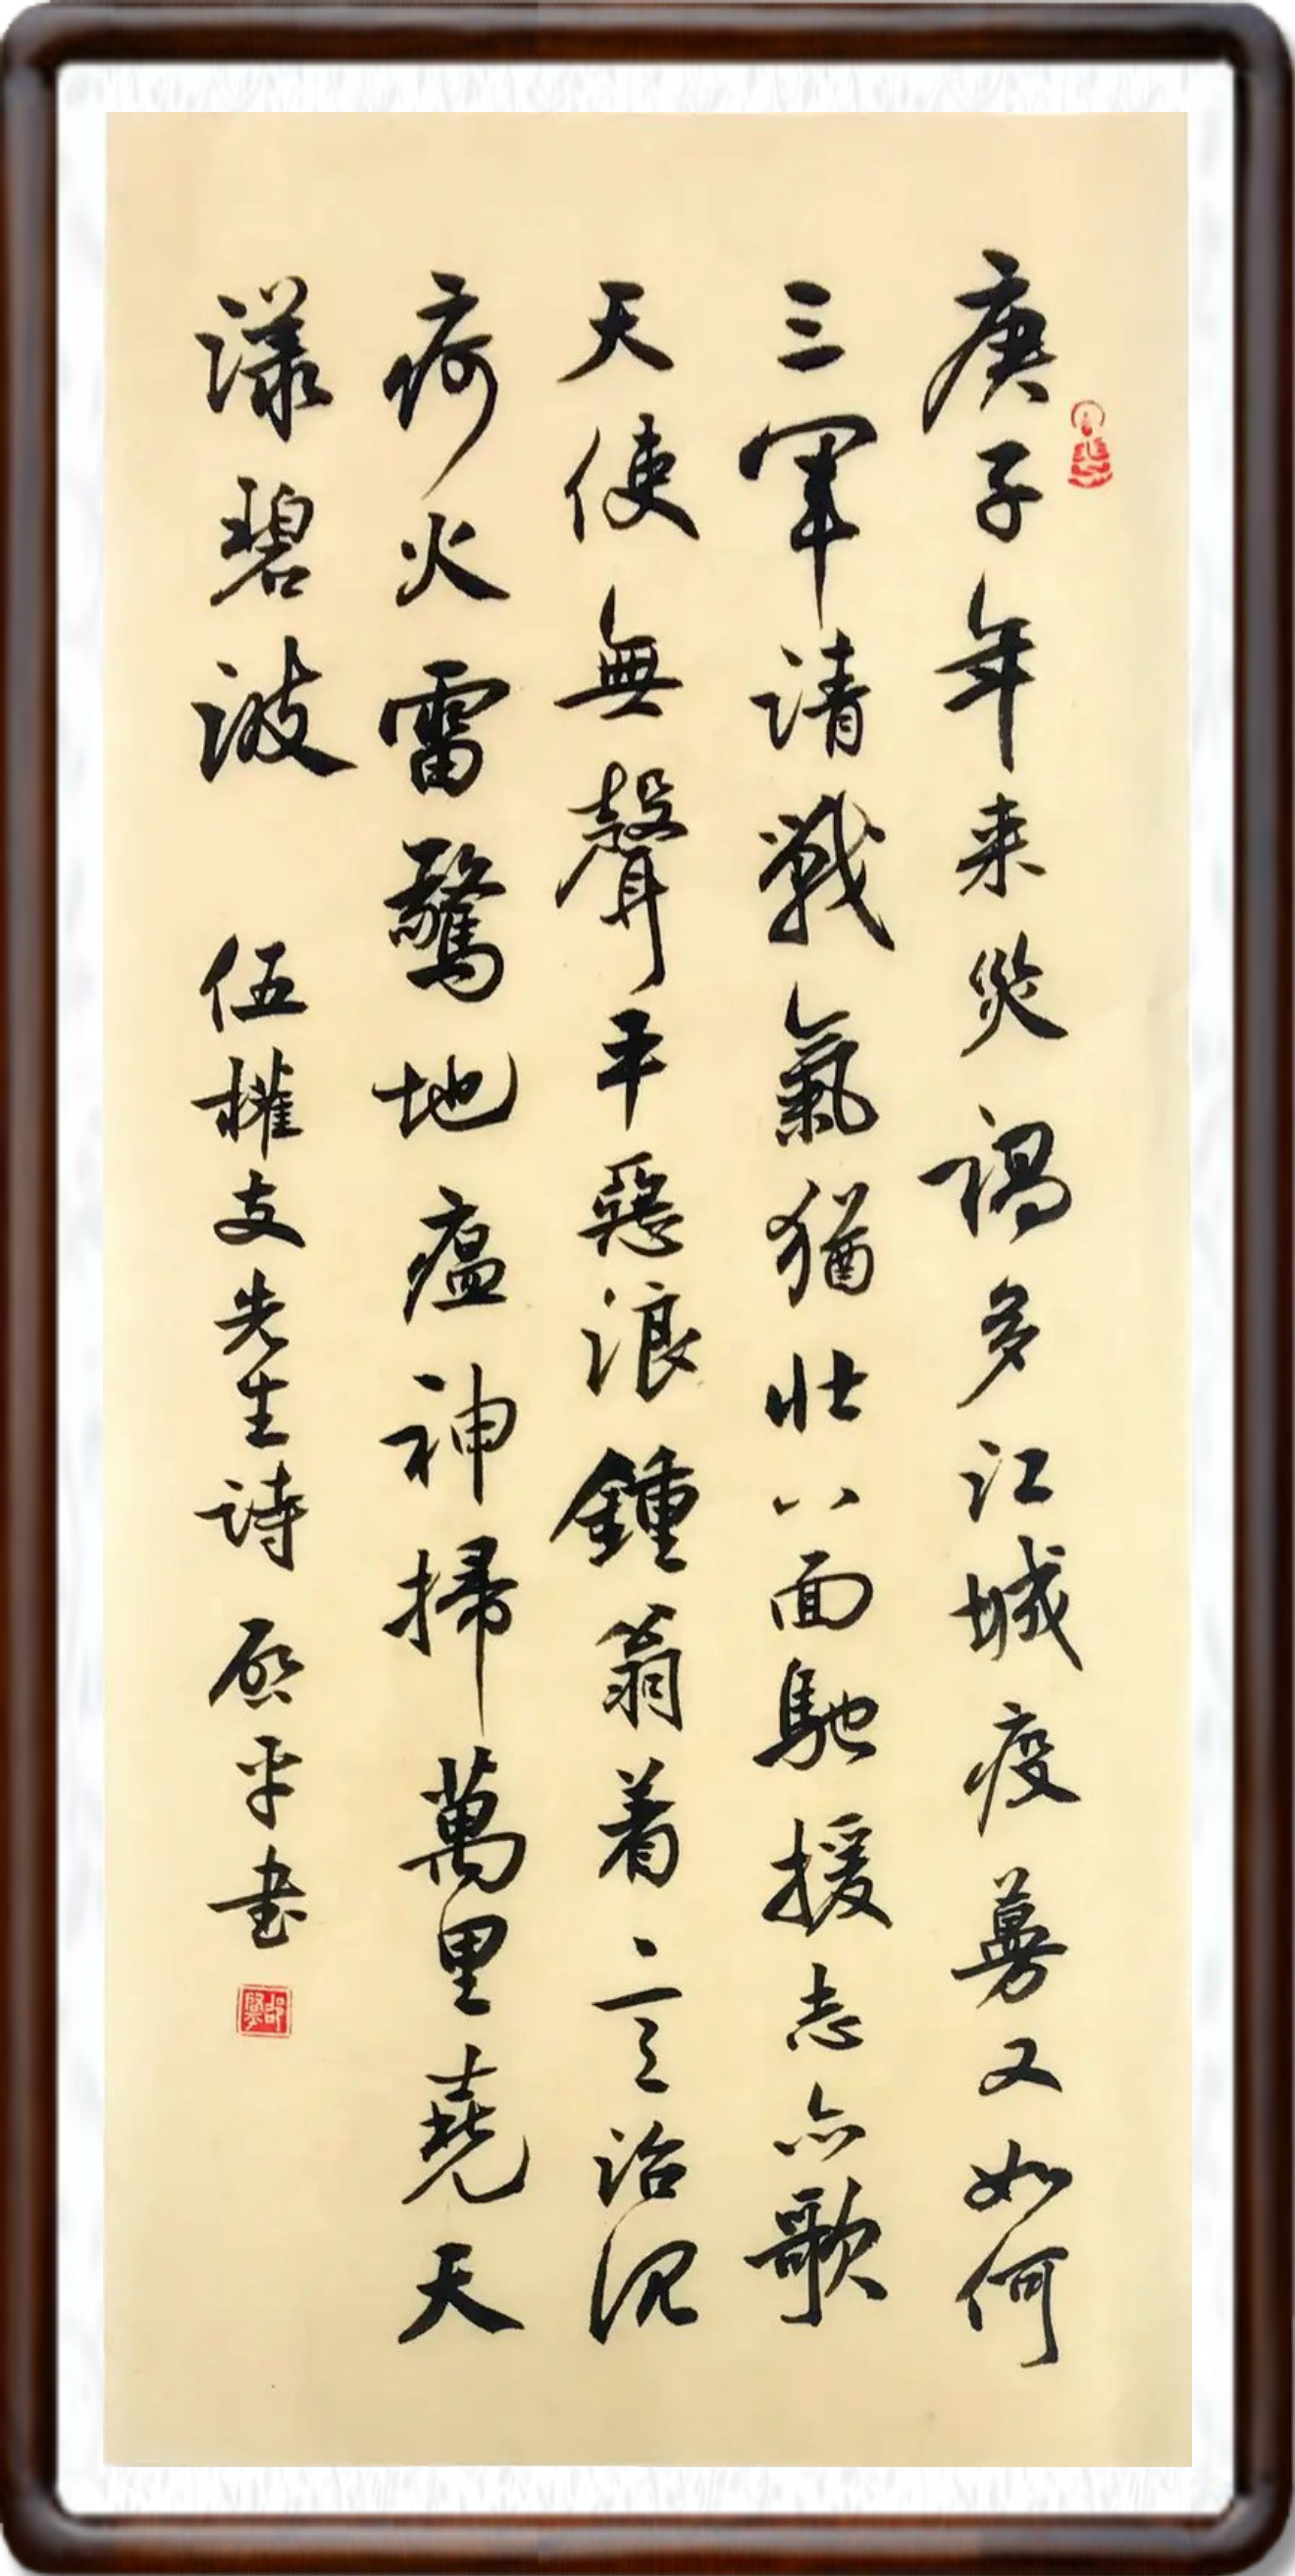 庚子年来災禍多江城疫蔓又如何
三軍請戰氣猶壯八面馳援志亦歌
天使無聲平惡浪鍾翁着意治沉
疴火雷驚地瘟神掃萬里堯天
漾碧波 伍權支先生詩 啟平書